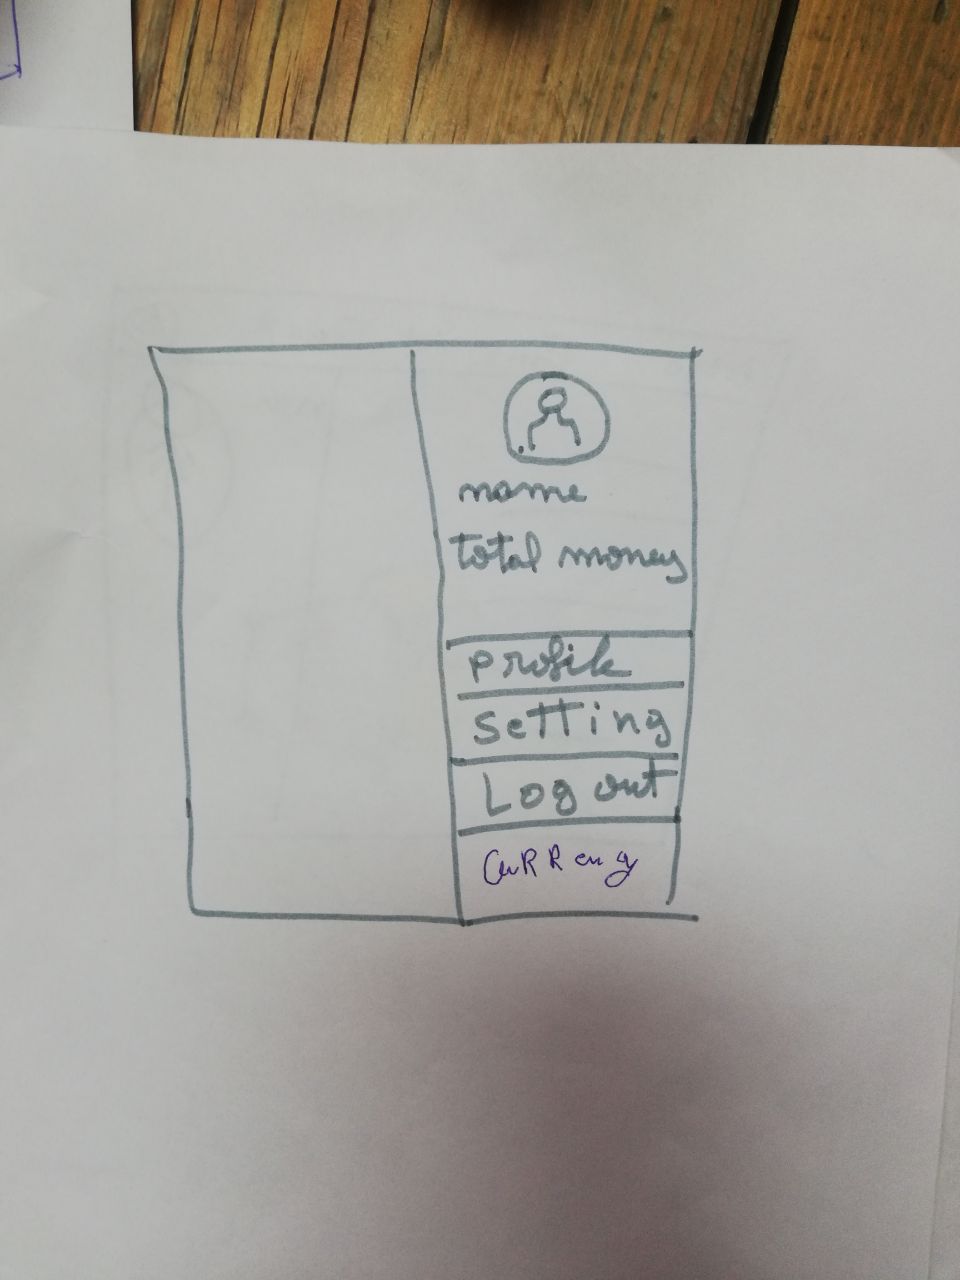 name
total money
profile
setting
Log out
CuRRency